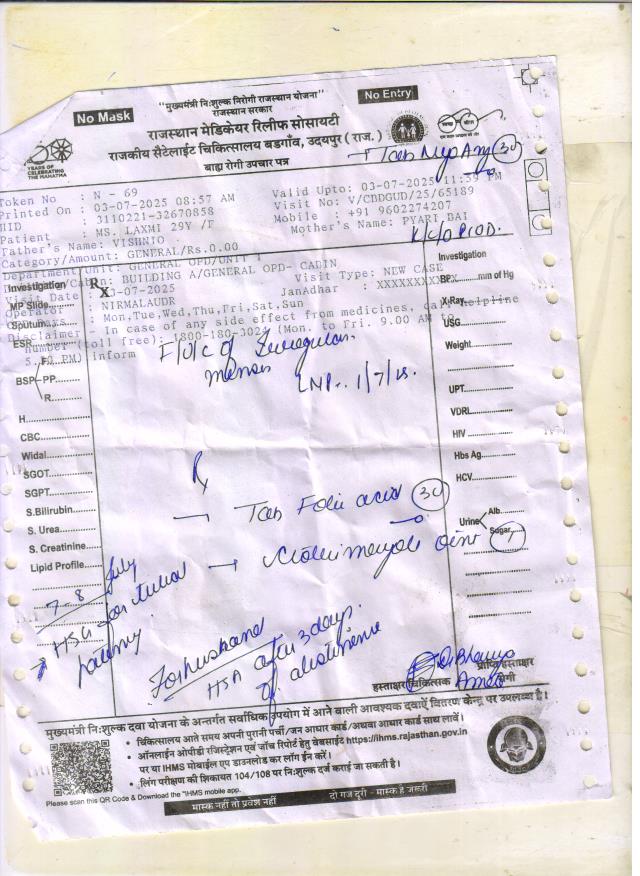 "मुख्यमंत्री निःशुल्क निरोगी राजस्थान योजना"
राजस्थान सरकार
No Mask
No Entry
राजस्थान मेडिकेयर रिलीफ सोसायटी
राजकीय सैटेलाईट चिकित्सालय बडगाँव, उदयपुर ( राज. )
बाह्य रोगी उपचार पत्र
YEARS OF
CELEBRATING
THE MAHATMA
+ Tab 30
Token No : N - 69
Valid Upto: 03-07-2025 11:59 PM
Printed On : 03-07-2025 08:57 AM
Visit No: V/CBDGUD/25/65189
HID : 3110221-32670858
Mobile : +91 9602274207
Patient : MS. LAXMI 29Y /F
Mother's Name: PYARI BAI
Father's Name: VISHNIO
Category/Amount: GENERAL/Rs.0.00
Department/Unit: GENERAL OPD/UNIT 1
BUILDING A/GENERAL OPD- CABIN
Visit Type: NEW CASE
Visit Date : 03-07-2025
JanAdhar : XXXXXXXXXX
Operator : NIRMALAUDR
Days : Mon,Tue,Wed,Thu,Fri,Sat,Sun
Disclaimer : In case of any side effect from medicines, call helpline
number (toll free): 1800-180-3024 (Mon. to Fri. 9.00 AM to
5.00 PM) inform
Rx
Investigation
MP Slide
Sputum
ESR
BSP
F
PP
R
H
CBC
Widal
SGOT
SGPT
S.Bilirubin
S. Urea
S. Creatinine
Lipid Profile
Investigation
BP mm of Hg
X-Ray
USG
Weight
UPT
VDRL
HIV
Hbs Ag
HCV
Urine
Alb.
Sugar
K/c/o PCOD.
F/U/C of Irregular
menses
LMP- 1/7/25.
Rx
- Tab Folic acid 30
- Clotrimazole oint 1
7-8 July
HSG for tubal
patency
For husband
HSA after 3 days
of abstinence
हस्ताक्षर चिकित्सक
प्राप्ति हस्ताक्षर
रोगी
मुख्यमंत्री निःशुल्क दवा योजना के अन्तर्गत सर्वाधिक उपयोग में आने वाली आवश्यक दवाऐं वितरण केन्द्र पर उपलब्ध है।
• चिकित्सालय आते समय अपनी पुरानी पर्ची/जन आधार कार्ड/अथवा आधार कार्ड साथ लावें।
• ऑनलाईन ओपीडी रजिस्ट्रेशन एवं जाँच रिपोर्ट हेतु वेबसाईट https://ihms.rajasthan.gov.in
पर या IHMS मोबाईल एप डाउनलोड कर लॉग ईन करें।
• लिंग परीक्षण की शिकायत 104/108 पर निःशुल्क दर्ज कराई जा सकती है।
Please scan this QR Code & Download the "IHMS mobile app.
मास्क नहीं तो प्रवेश नहीं
दो गज दूरी - मास्क है जरूरी